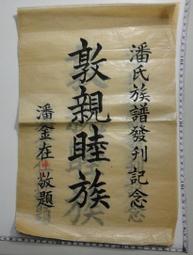 潘氏族譜發刊記念
敦親睦族
潘金在敬題